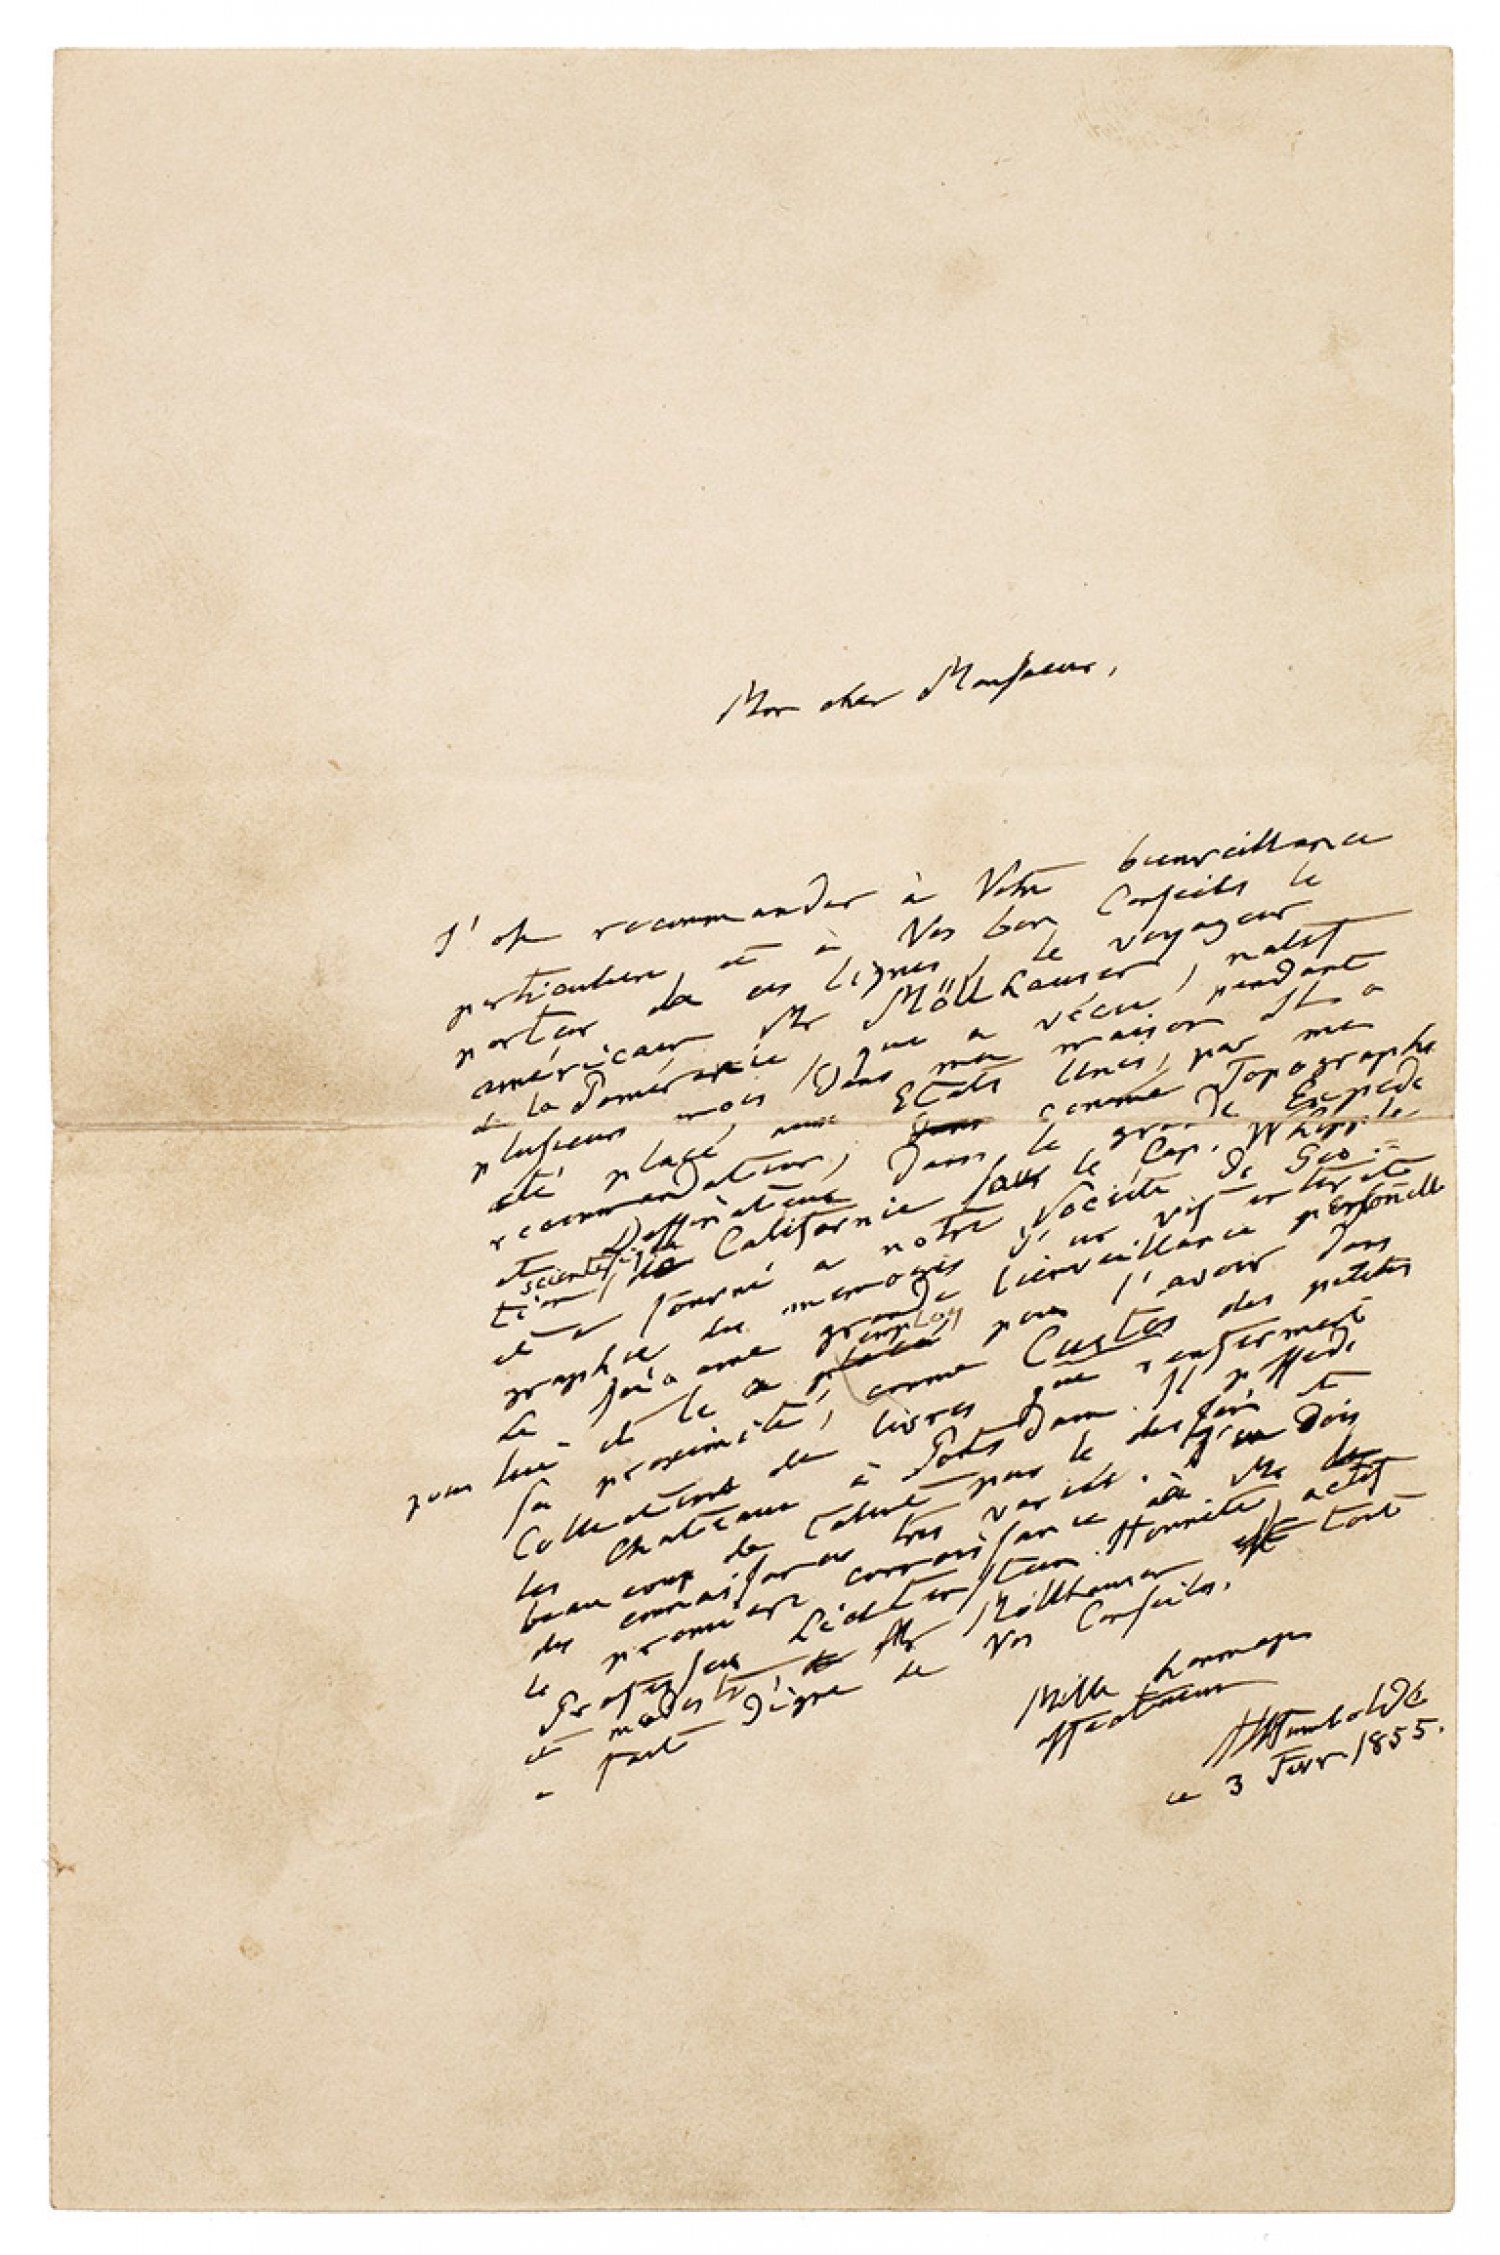 Mon cher Monsieur,
J'ose recommander à Votre bienveillance
particuliere, et à Vos bons Conseils le
porteur de ces lignes, le voyageur
américain Mr Möllhausen, natif
de la Poméranie que a vécu, pendant
plusieurs mois, dans ma maison Il a
été placé, aux Etats Unis, par ma
recommandation, dans comme Topographe
et Dessinateur dans la grande Expedi
scientifique
tion, de Californie sous le Cap. Whipple
et a fourni a notre Société de Geo=
graphie des memoires d'un vif interêt
Le Roi a une grande bienveillance personelle
pour lui et le a placé employé pour l'avoir dans
sa proximité, comme Custos des petites
Collections de livres que renferment
les Chateaux à Potsdam. Il possede
beaucoup de talent pour le dessin et
des connaissances très variés. J'en dois
la premiere connaissance à Mr le
Professeur Lichtenstein. Honnête, actif
et modeste Mr Möllhausen est tout
a fait digne de Vos Conseils.
Mille hommages
affectueux
AHumboldt
ce 3 Fevr 1855.